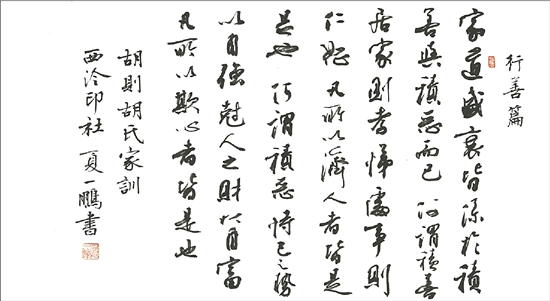 行善篇
家道盛衰皆源於積
善與積惡而已 何謂積善
居家則孝悌處事則
仁恕 凡所以濟人者皆是
是也 何謂積惡恃己之勢
以自強尅人之財以自富
凡所以欺心者皆是也
胡則胡氏家訓
西泠印社 夏一鵬書